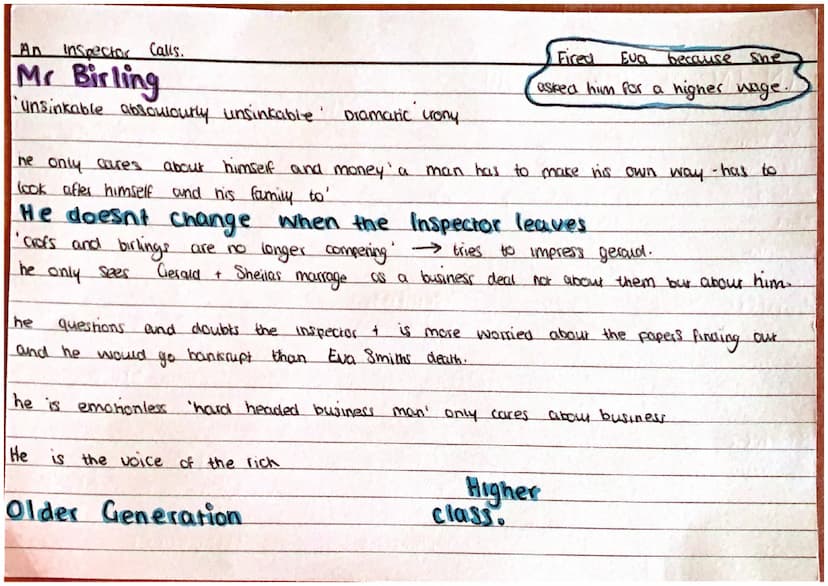 An Inspector Calls.
Mr Birling
Fired Eva because she
asked him for a higher wage.
'unsinkable absoulourly unsinkable' Dramatic irony
he only cares about himself and money 'a man has to make his own way - has to
look after himself and his family to'
He doesnt change when the Inspector leaves
'crofs and birlings are no longer compering' → tries to impress gerald.
he only sees Gerald + Sheilas marrage as a business deal not about them but about him.
he questions and doubts the inspector + is more worried about the papers finding out
and he would go bankrupt than Eva Smiths death.
he is emotionless 'hard headed business man' only cares about business
He is the voice of the rich
Older Generation
Higher
class.